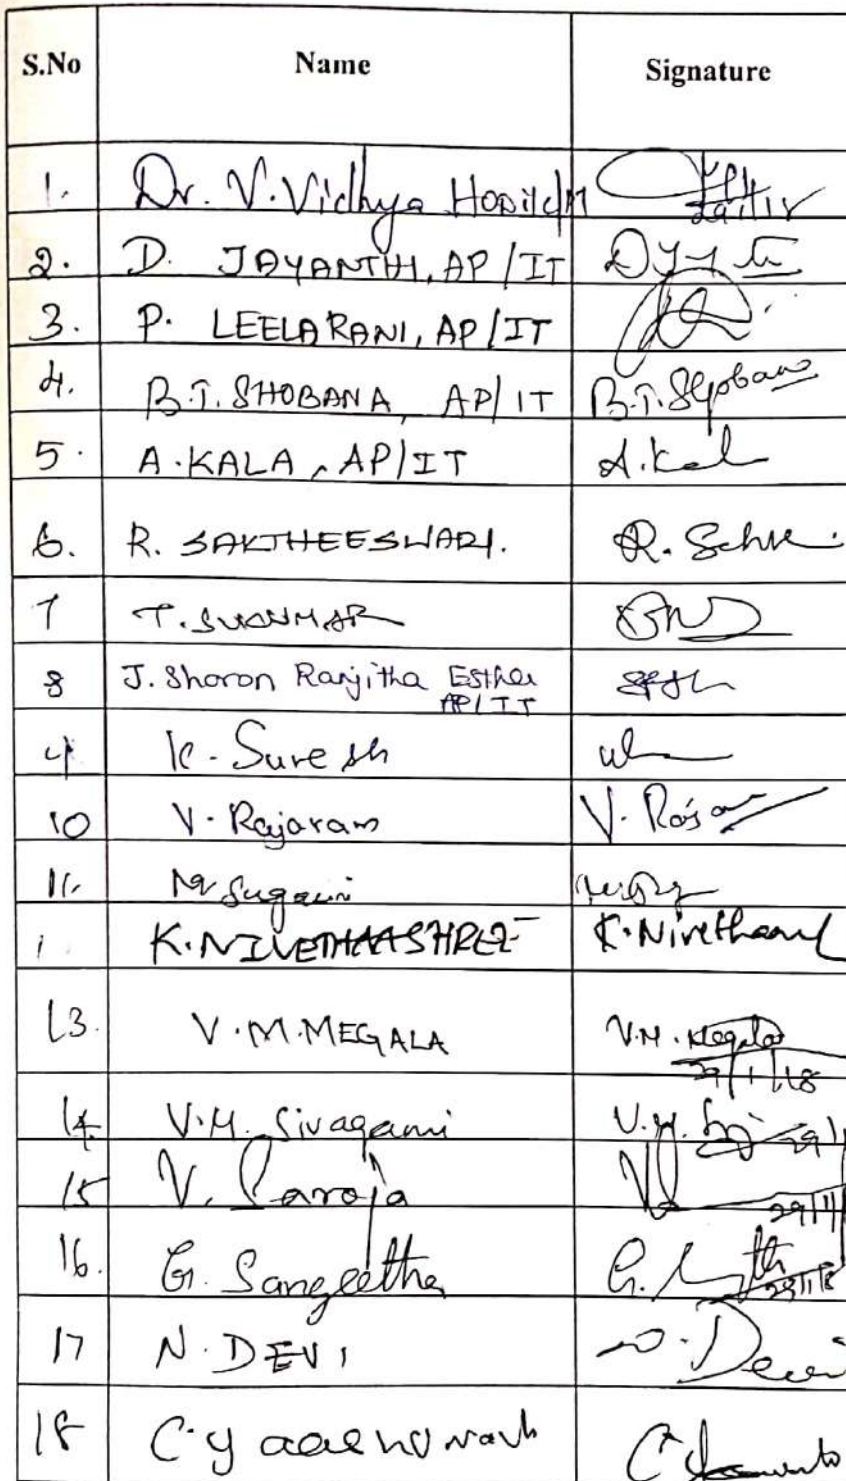 S.No Name Signature
1. Dr. V. Vidhya HOD/IT
2. D. JAYANTHI, AP/IT
3. P. LEELARANI, AP/IT
4. B.T. SHOBANA, AP/IT B.T. Shobana
5. A. KALA, AP/IT A. Kal
6. R. SAKTHEESWARI. R.
7 T. SUKUMAR
8 J. Sharon Ranjitha Esther
AP/IT
9 K. Suresh
10 V. Rajaram V. Raja
11. Sugani
K. NIVETHAASHREE K. Nivethaa
13. V. M. MEGALA V.M. Megala
29/1/18
14. V.M. Sivagami V.M. 29/1
15 V. Saroja 29/1
16. G. Sangeetha G. 29/1/18
17 N. DEVI N. Devi
18 C. C.